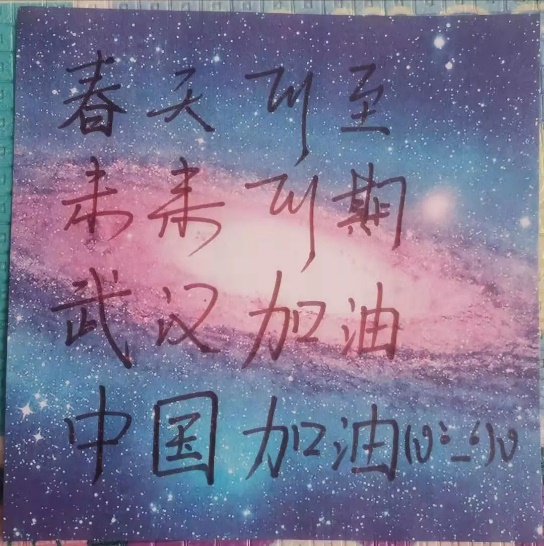 春天可至
未来可期
武汉加油
中国加油(ง •̀_•́)ง